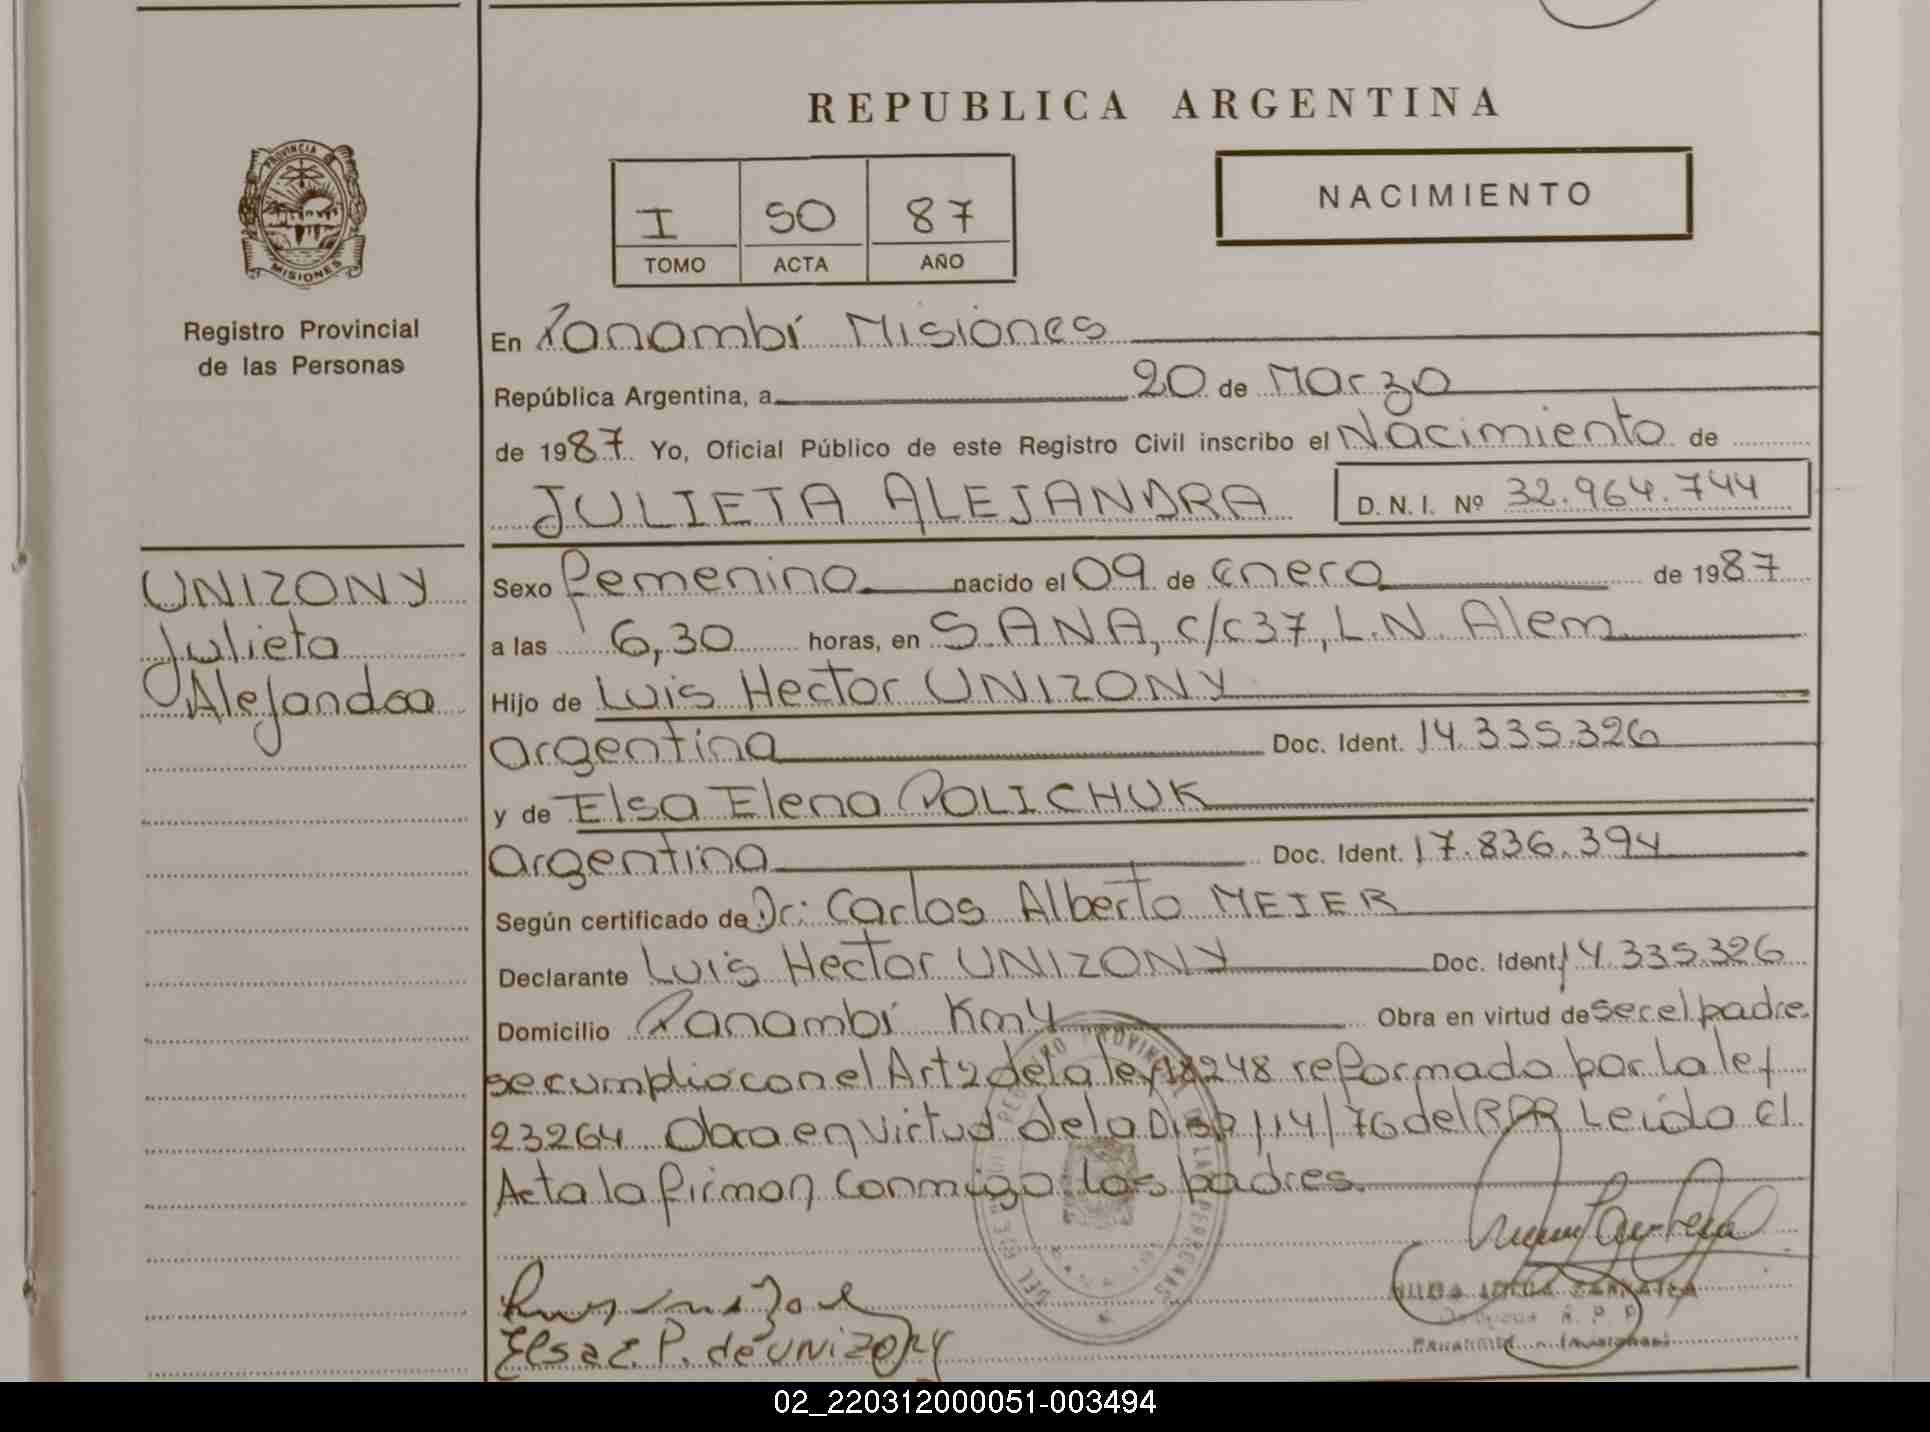 REPUBLICA ARGENTINA
PROVINCIA DE
MISIONES
Registro Provincial
de las Personas
I 50 87
TOMO ACTA AÑO
NACIMIENTO
En Panambí Misiones
República Argentina, a 20 de Marzo
de 1987 Yo, Oficial Público de este Registro Civil inscribo el Nacimiento de
JULIETA ALEJANDRA D. N. I. Nº 32.964.744
UNIZONY
Julieta
Alejandra
Sexo femenino nacido el 09 de enero de 1987
a las 6,30 horas, en SANA, c/c37, L.N. Alem
Hijo de Luis Hector UNIZONY
argentina Doc. Ident. 14.335.326
y de Elsa Elena POLICHUK
argentina Doc. Ident. 17.836.394
Según certificado de Dr: Carlos Alberto MEIER
Declarante Luis Hector UNIZONY Doc. Ident. 14.335.326
Domicilio Panambí Km4 Obra en virtud de ser el padre.
se cumplio con el Art 2 de la ley 18248 reformado por la ley
23264 Obra en virtud de la Disp 114/76 del RPP Leido el
Acta la firman conmigo los padres.
Elsa E. P. de UNIZONY
02_220312000051-003494